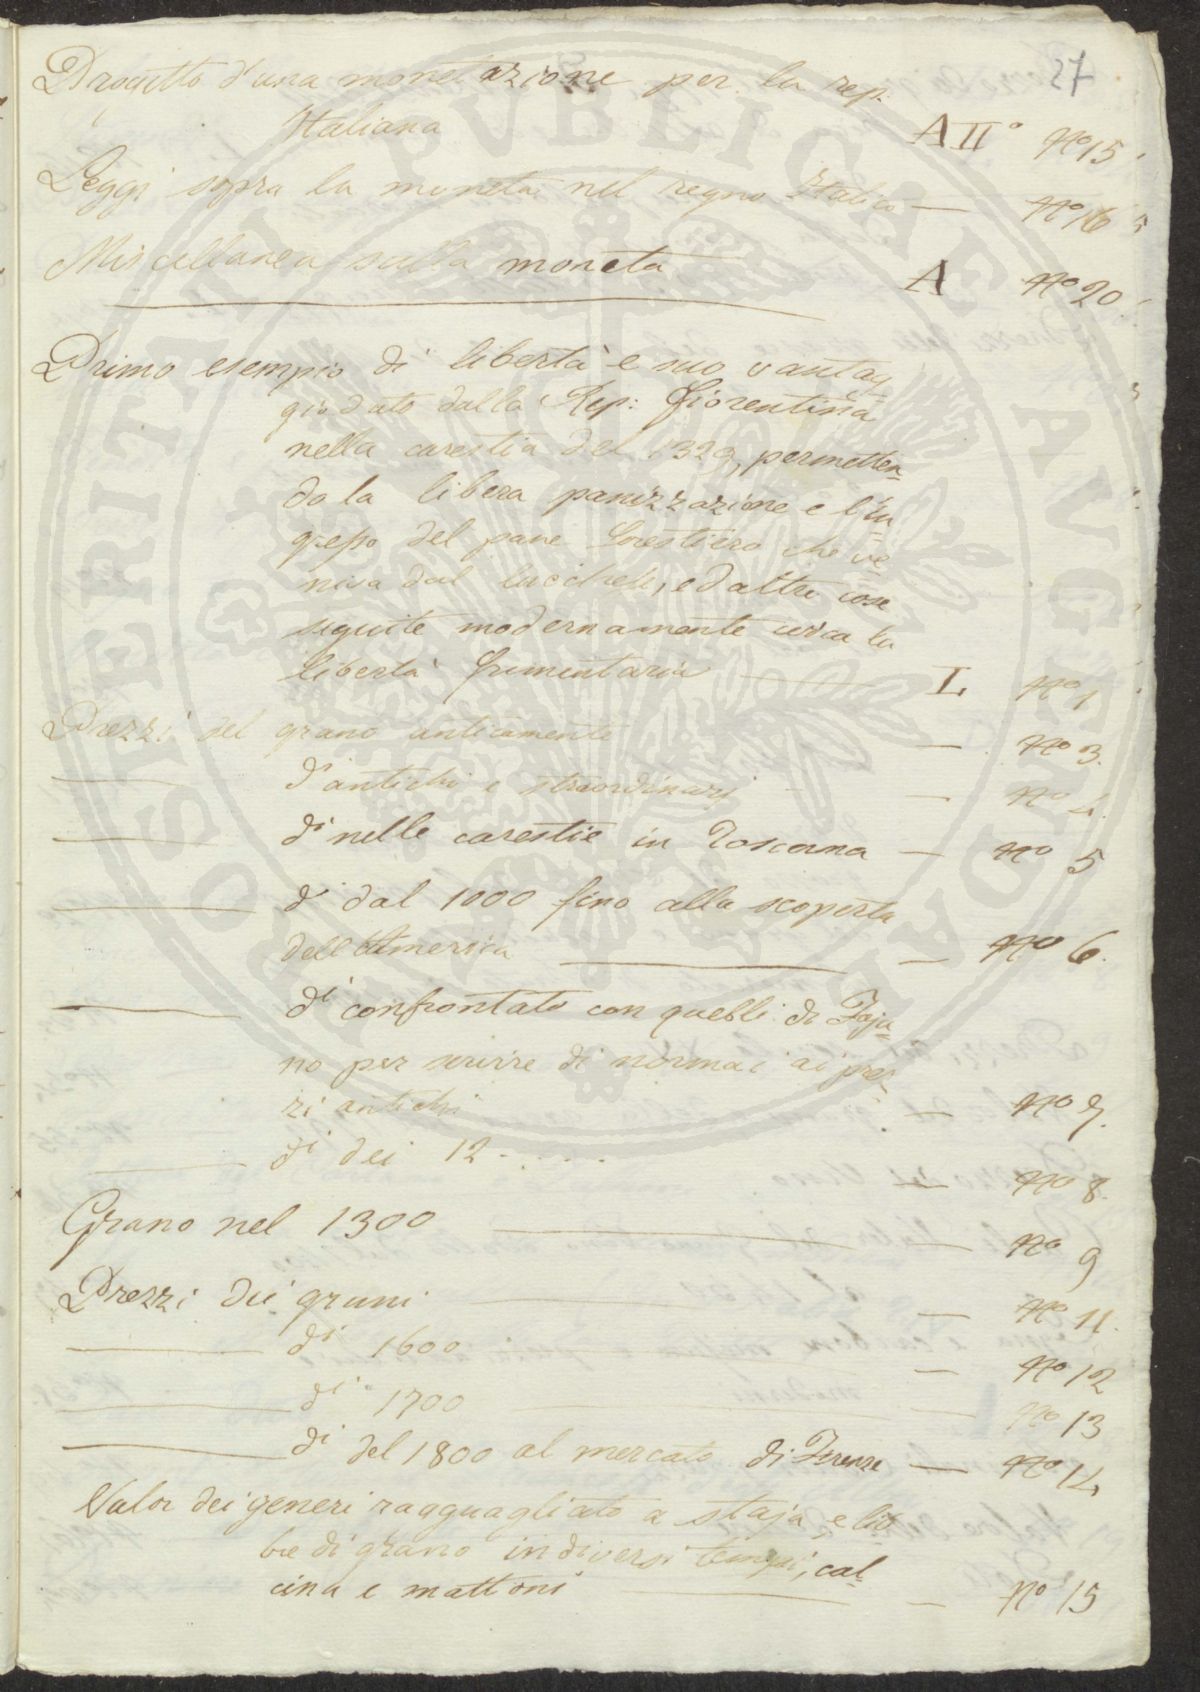 27
Progetto d'una monetazione per la rep.
Italiana A II° N° 15.
Leggi sopra la moneta nel regno Italico — N° 16
Miscellanea sulla moneta A N° 20.
Primo esempio di libertà e suo vantag
gio dato dalla Rep: Fiorentina
nella carestia del 1329, permetten-
do la libera panizzazione e l'in-
gresso del pane forestiero che ve-
niva dal lucchese, ed altre cose
seguite modernamente circa la
libertà frumentaria L N° 1
Prezzi del grano anticamente — N° 3.
— di antichi e straordinarj — N° 4.
— di nelle carestie in Toscana — N° 5
— di dal 1000 fino alla scoperta
dell'America — N° 6.
— di confrontato con quelli di Faja-
no per servire di norma ai prez-
zi antichi — N° 7.
— di dei 12..... — N° 8.
Grano nel 1300 — N° 9
Prezzi dei grani — N° 11.
— di 1600 — N° 12
— di 1700 — N° 13
— di del 1800 al mercato di Firenze — N° 14
Valor dei generi ragguagliato a staja, e lib
bre di grano in diversi tempi, cal-
cina e mattoni — N° 15
POSTERITATI PVBLICAE AVGENDAE